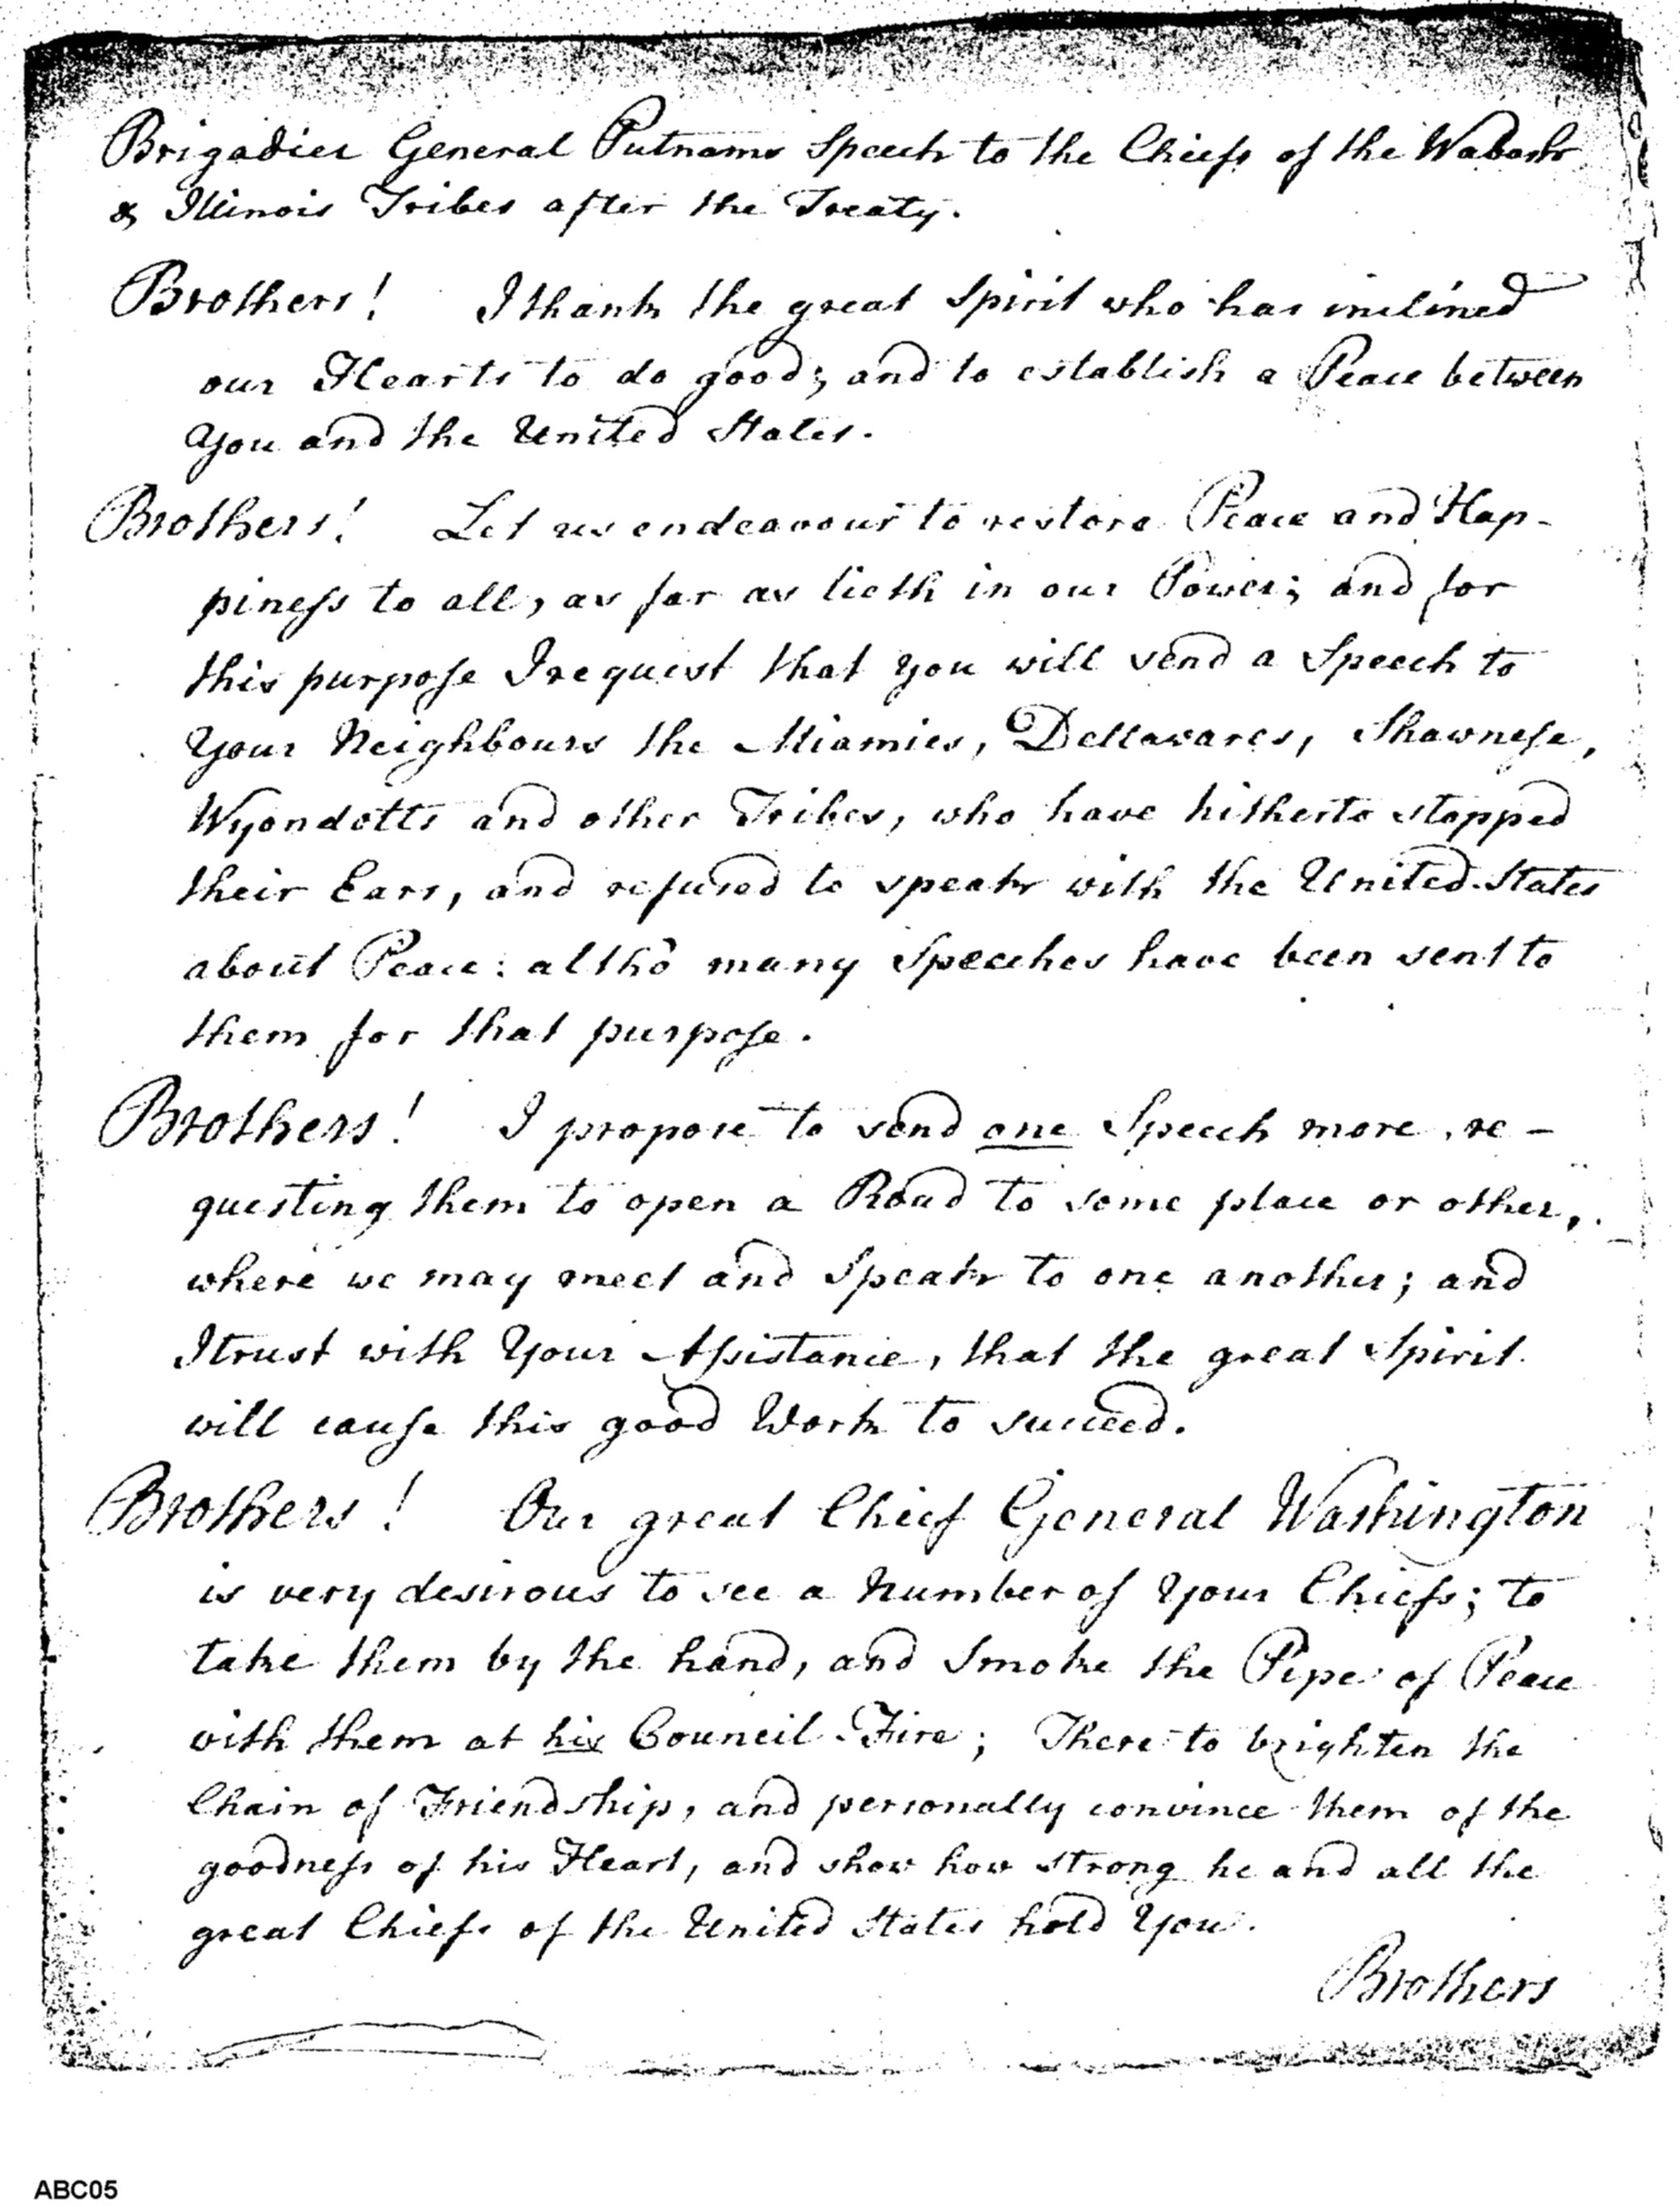 Brigadier General Putnams Speech to the Chiefs of the Wabash
& Illinois Tribes after the Treaty.
Brothers! I thank the great Spirit who has inclined
our Hearts to do good; and to establish a Peace between
You and the United States.
Brothers! Let us endeavour to restore Peace and Hap-
piness to all, as far as lieth in our Power; and for
this purpose I request that you will send a Speech to
Your Neighbours the Miamies, Dellawares, Shawnese,
Wyondotts and other Tribes, who have hitherto stopped
their Ears, and refused to speak with the United States
about Peace: altho many Speeches have been sent to
them for that purpose.
Brothers! I propose to send one Speech more, re-
questing them to open a Road to some place or other,
where we may meet and Speak to one another; and
I trust with Your Assistance, that the great Spirit
will cause this good Work to succeed.
Brothers! Our great Chief General Washington
is very desirous to see a Number of Your Chiefs; to
take them by the hand, and Smoke the Pipe of Peace
with them at his Council Fire; There to brighten the
Chain of Friendship, and personally convince them of the
goodness of his Heart, and show how strong he and all the
great Chiefs of the United States hold You.
Brothers
ABC05